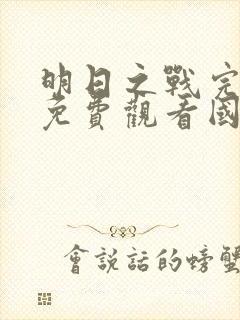 明日之戰完
免費觀看國
會説話的螃蟹